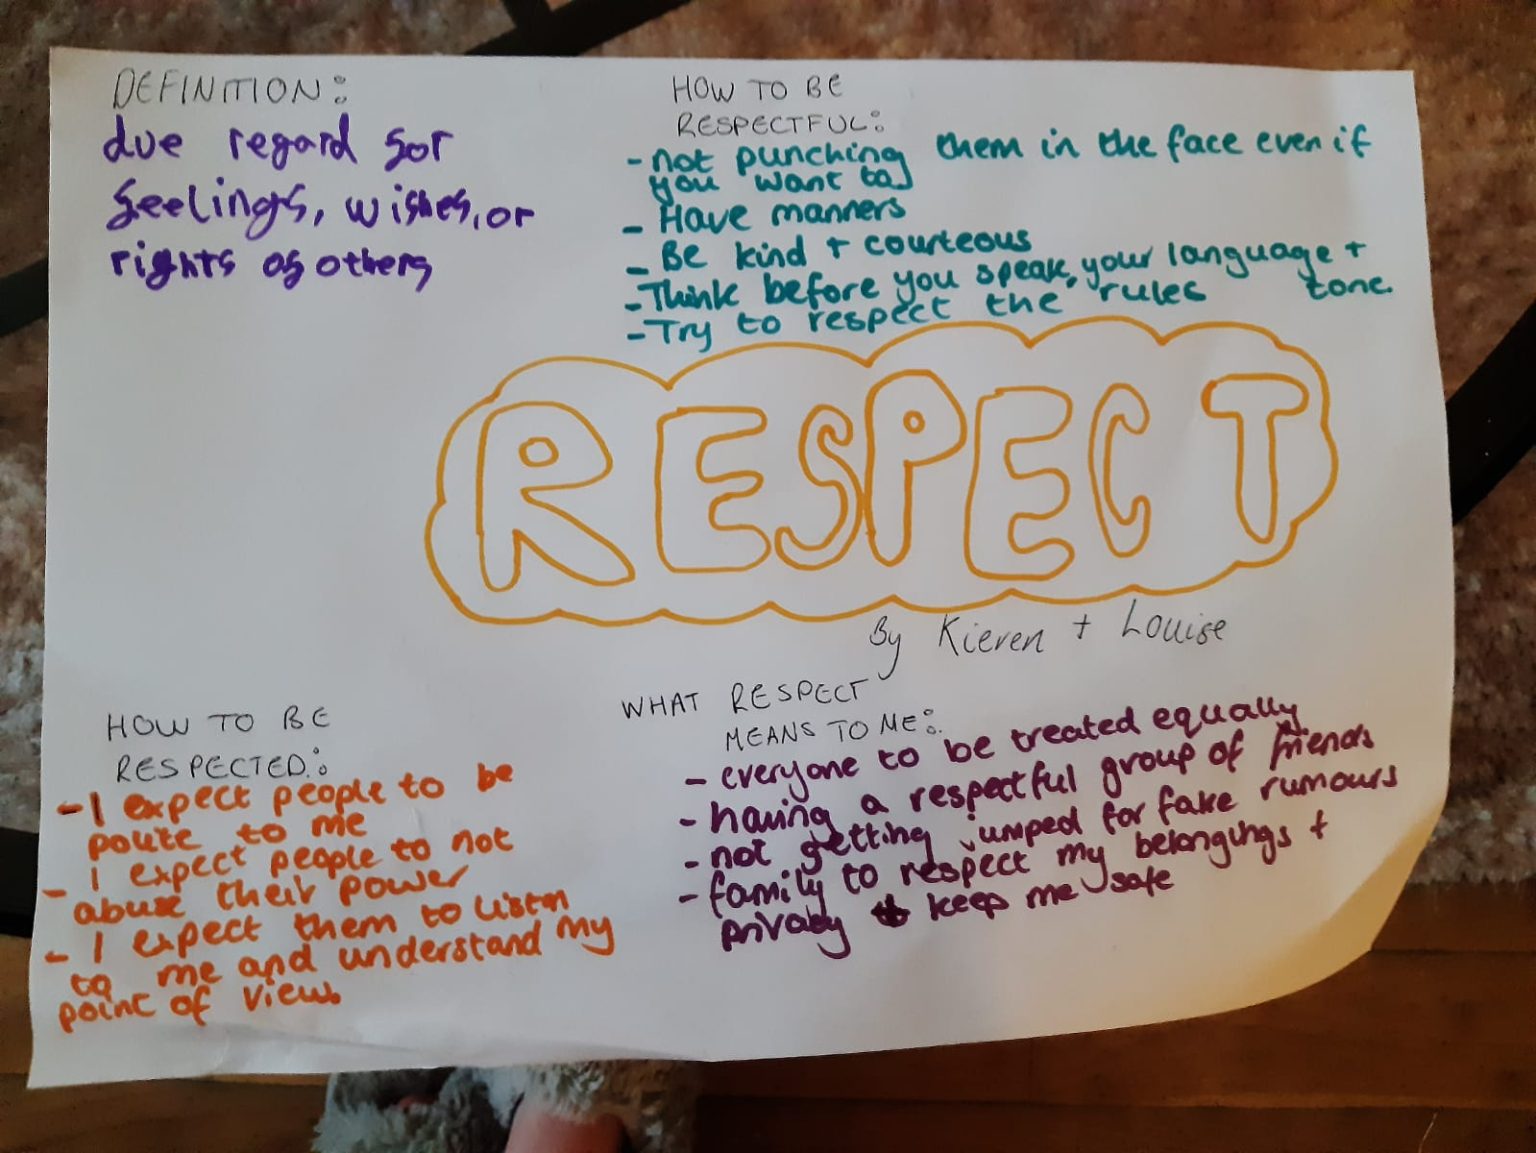 DEFINITION:
due regard for
feelings, wishes, or
rights of others
HOW TO BE
RESPECTFUL:
- not punching them in the face even if
you want to
- Have manners
- Be kind + courteous
- Think before you speak, your language +
tone.
- Try to respect the rules
RESPECT
By Kieren + Louise
HOW TO BE
RESPECTED:
- I expect people to be
polite to me
- I expect people to not
abuse their power
- I expect them to listen
to me and understand my
point of view.
WHAT RESPECT
MEANS TO ME:
- everyone to be treated equally
- having a respectful group of friends
- not getting jumped for fake rumours
- family to respect my belongings +
privacy keep me safe